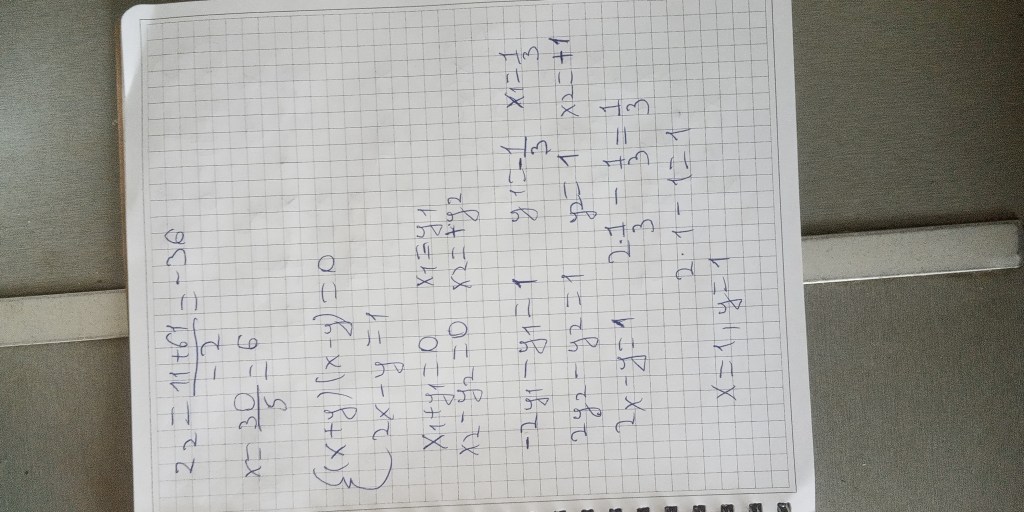 z₂ = (11+61)/-2 = -36
x = 30/5 = 6
{(x+y)(x-y) = 0
2x - y = 1
x1+y1=0 x1=y1
x2-y2=0 x2=+y2
-2y1-y1=1 y1=-1/3 x1=1/3
2y2-y2=1 y2=1 x2=+1
2x-y=1 2·1/3 - 1/3 = 1/3
2·1-1=1
x=1, y=1